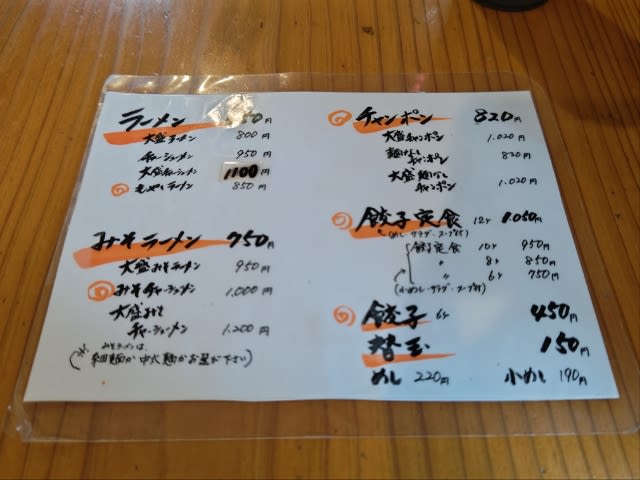 ラーメン 50円
大盛ラーメン 800円
チャーシューメン 950円
大盛チャーシューメン 1100円
もやしラーメン 850円
みそラーメン 750円
大盛みそラーメン 950円
みそチャーシューメン 1.000円
大盛みそ
チャーシューメン 1.200円
(※みそラーメンは、
細麺か中太麺かお選び下さい)
チャンポン 820円
大盛チャンポン 1.020円
麺なし
チャンポン 820円
大盛麺なし
チャンポン 1.020円
餃子定食 12ケ 1.050円
(めし・サラダ・スープ付)
餃子定食 10ケ 950円
〃 8ケ 850円
〃 6ケ 750円
(小めし・サラダ・スープ付)
餃子 6ケ 450円
替玉 150円
めし 220円 小めし 190円